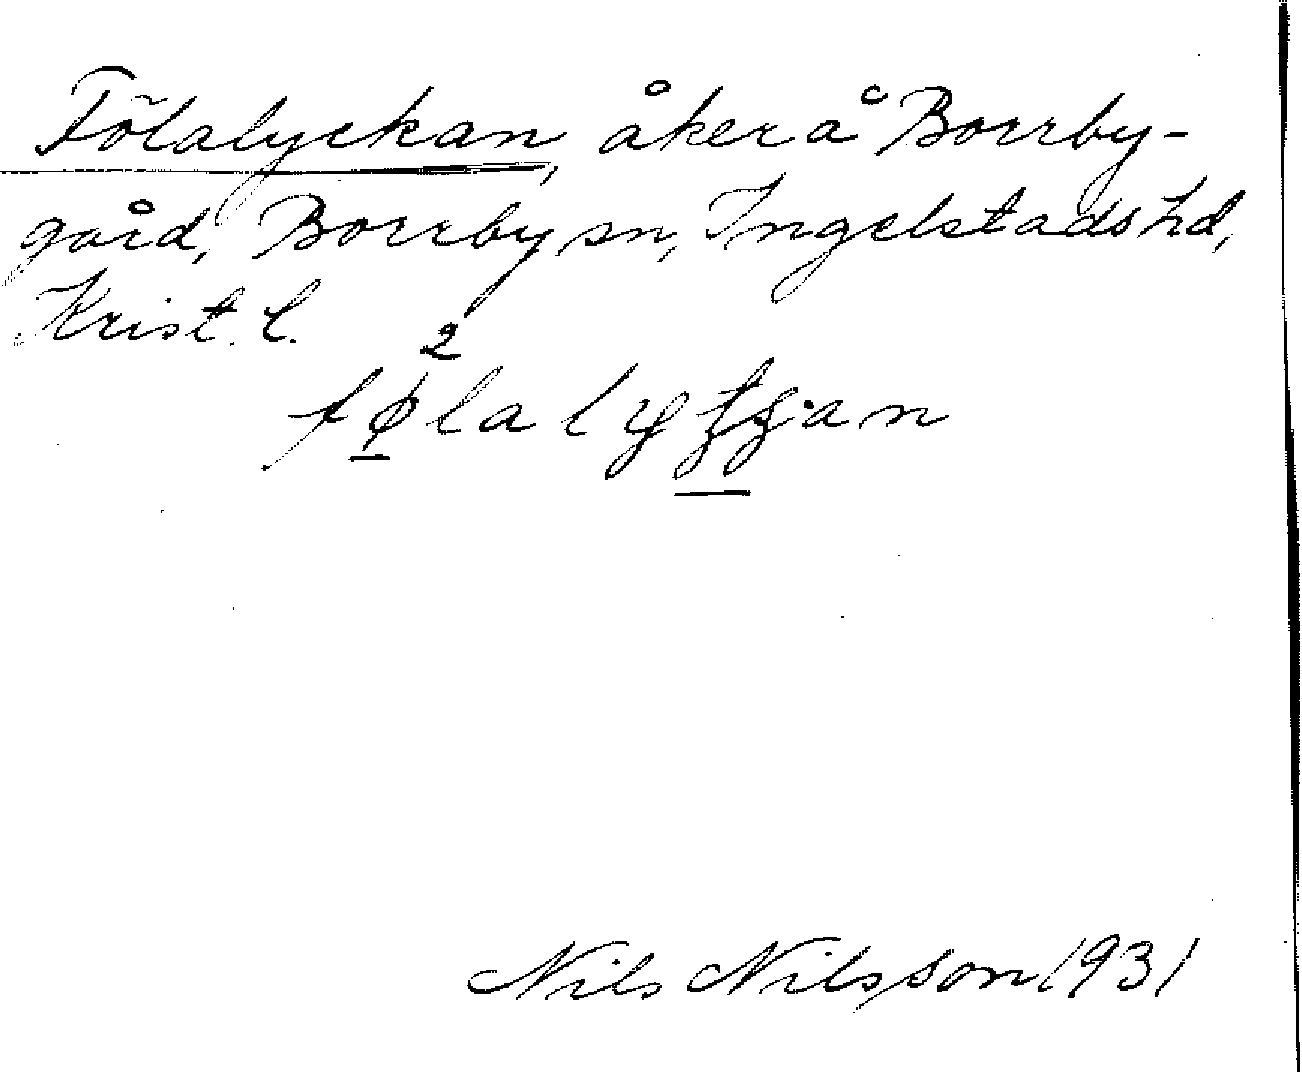 Fölalyckan, åker å Borrby-
gård, Borrby sn, Ingelstads hd,
Krist. l.
2
Nils Nilsson 1931